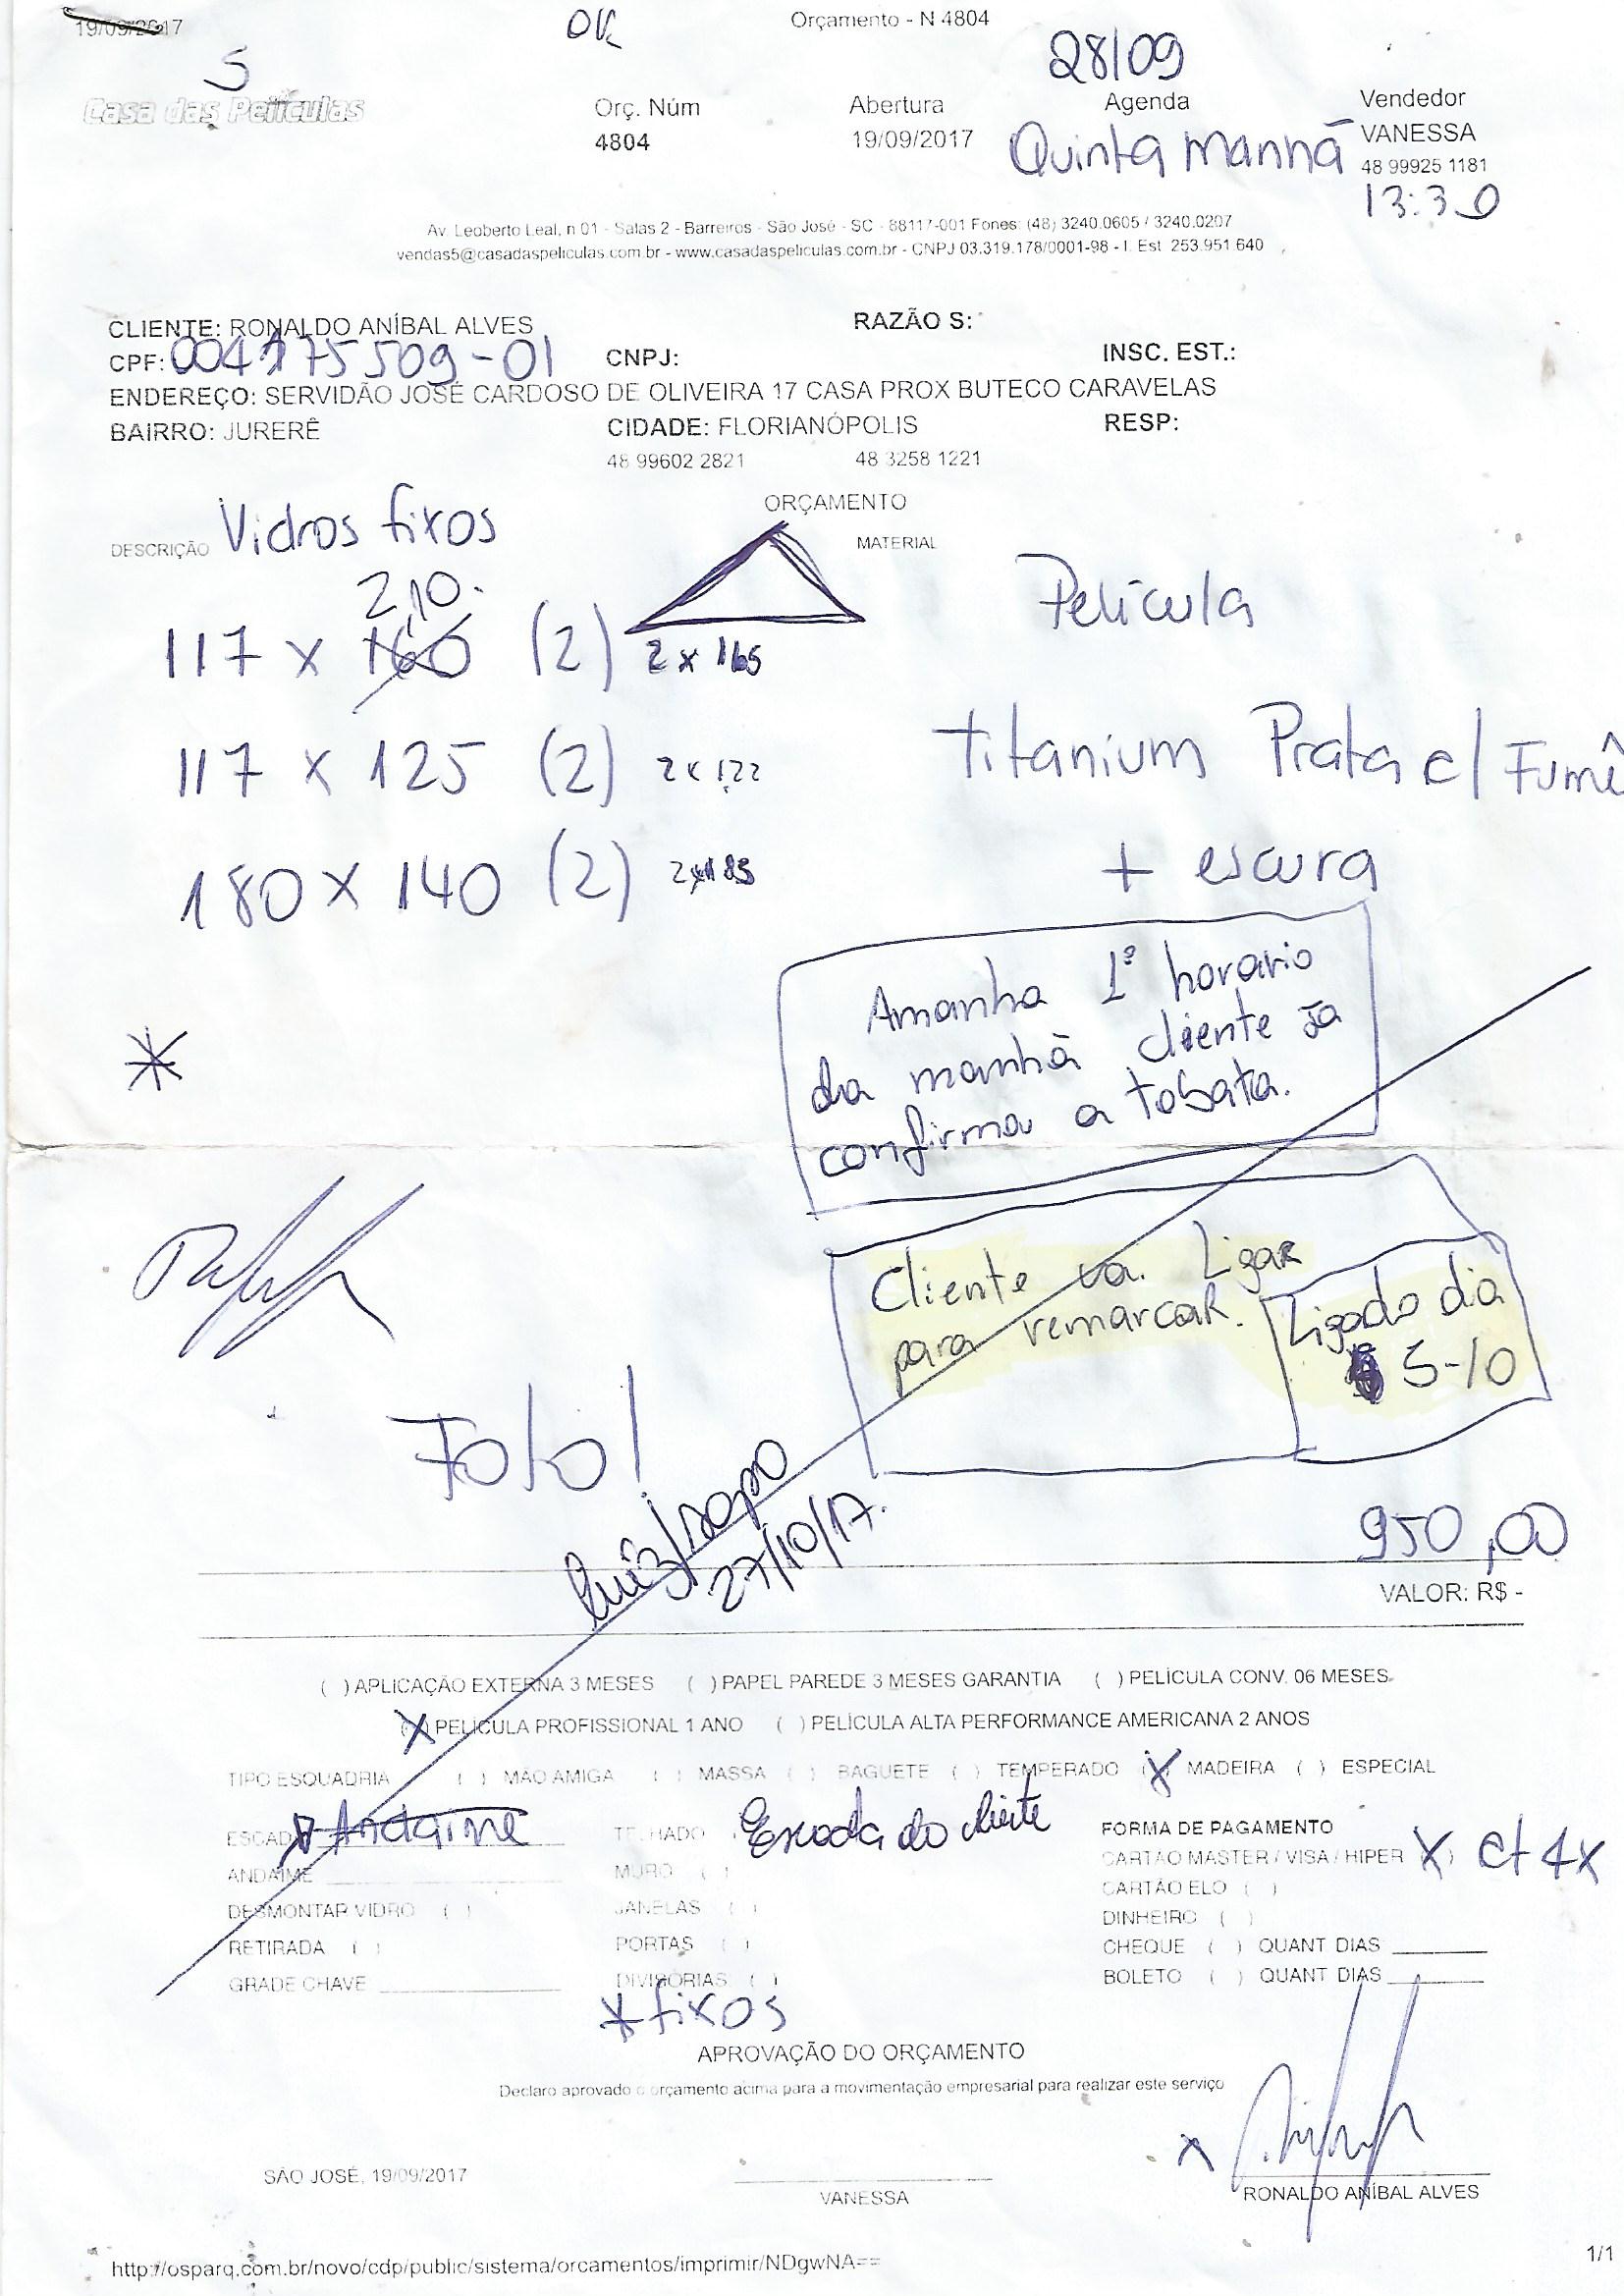 19/09/2017
OK
Orçamento - N 4804
28/09
S
Casa das Películas
Orç. Núm
4804
Abertura
19/09/2017
Agenda
Quinta Manhã
Vendedor
VANESSA
48 99925 1181
13:30
Av. Leoberto Leal, n 01 - Salas 2 - Barreiros - São José - SC - 88117-001 Fones: (48) 3240.0605 / 3240.0207
vendas5@casadaspeliculas.com.br - www.casadaspeliculas.com.br - CNPJ 03.319.178/0001-98 - I. Est 253.951.640
CLIENTE: RONALDO ANÍBAL ALVES
RAZÃO S:
CPF: 004175509-01
CNPJ:
INSC. EST.:
ENDEREÇO: SERVIDÃO JOSÉ CARDOSO DE OLIVEIRA 17 CASA PROX BUTECO CARAVELAS
BAIRRO: JURERÊ
CIDADE: FLORIANÓPOLIS
RESP:
48 99602 2821
48 3258 1221
ORÇAMENTO
DESCRIÇÃO Vidros fixos
MATERIAL
Película
2,10.
117 x 160 (2) 2 x 165
Titanium Prata c/ Fumê
117 x 125 (2) 2 x 122
+ escura
180 x 140 (2)
Amanha 1º horario
da manhã cliente ja
confirmou a tobata.
*
Cliente vai Ligar
para remarcar.
Ligado dia
5-10
Foto!
Luiz/sapo
27/10/17.
950,00
VALOR: R$ -
( ) APLICAÇÃO EXTERNA 3 MESES ( ) PAPEL PAREDE 3 MESES GARANTIA ( ) PELÍCULA CONV. 06 MESES
(X) PELÍCULA PROFISSIONAL 1 ANO ( ) PELÍCULA ALTA PERFORMANCE AMERICANA 2 ANOS
TIPO ESQUADRIA ( ) MÃO AMIGA ( ) MASSA ( ) BAGUETE ( ) TEMPERADO (X) MADEIRA ( ) ESPECIAL
ESCADA Andaime
TELHADO Escada do cliente
FORMA DE PAGAMENTO
ANDAIME
MURO ( )
CARTÃO MASTER / VISA / HIPER (X) ct 4x
CARTÃO ELO ( )
DESMONTAR VIDRO ( )
JANELAS ( )
DINHEIRO ( )
RETIRADA ( )
PORTAS ( )
CHEQUE ( ) QUANT DIAS
GRADE CHAVE
DIVISÓRIAS ( )
BOLETO ( ) QUANT DIAS
* fixos
APROVAÇÃO DO ORÇAMENTO
Declaro aprovado o orçamento acima para a movimentação empresarial para realizar este serviço
x
SÃO JOSÉ, 19/09/2017
VANESSA
RONALDO ANÍBAL ALVES
http://osparq.com.br/novo/cdp/public/sistema/orcamentos/imprimir/NDgwNA==
1/1